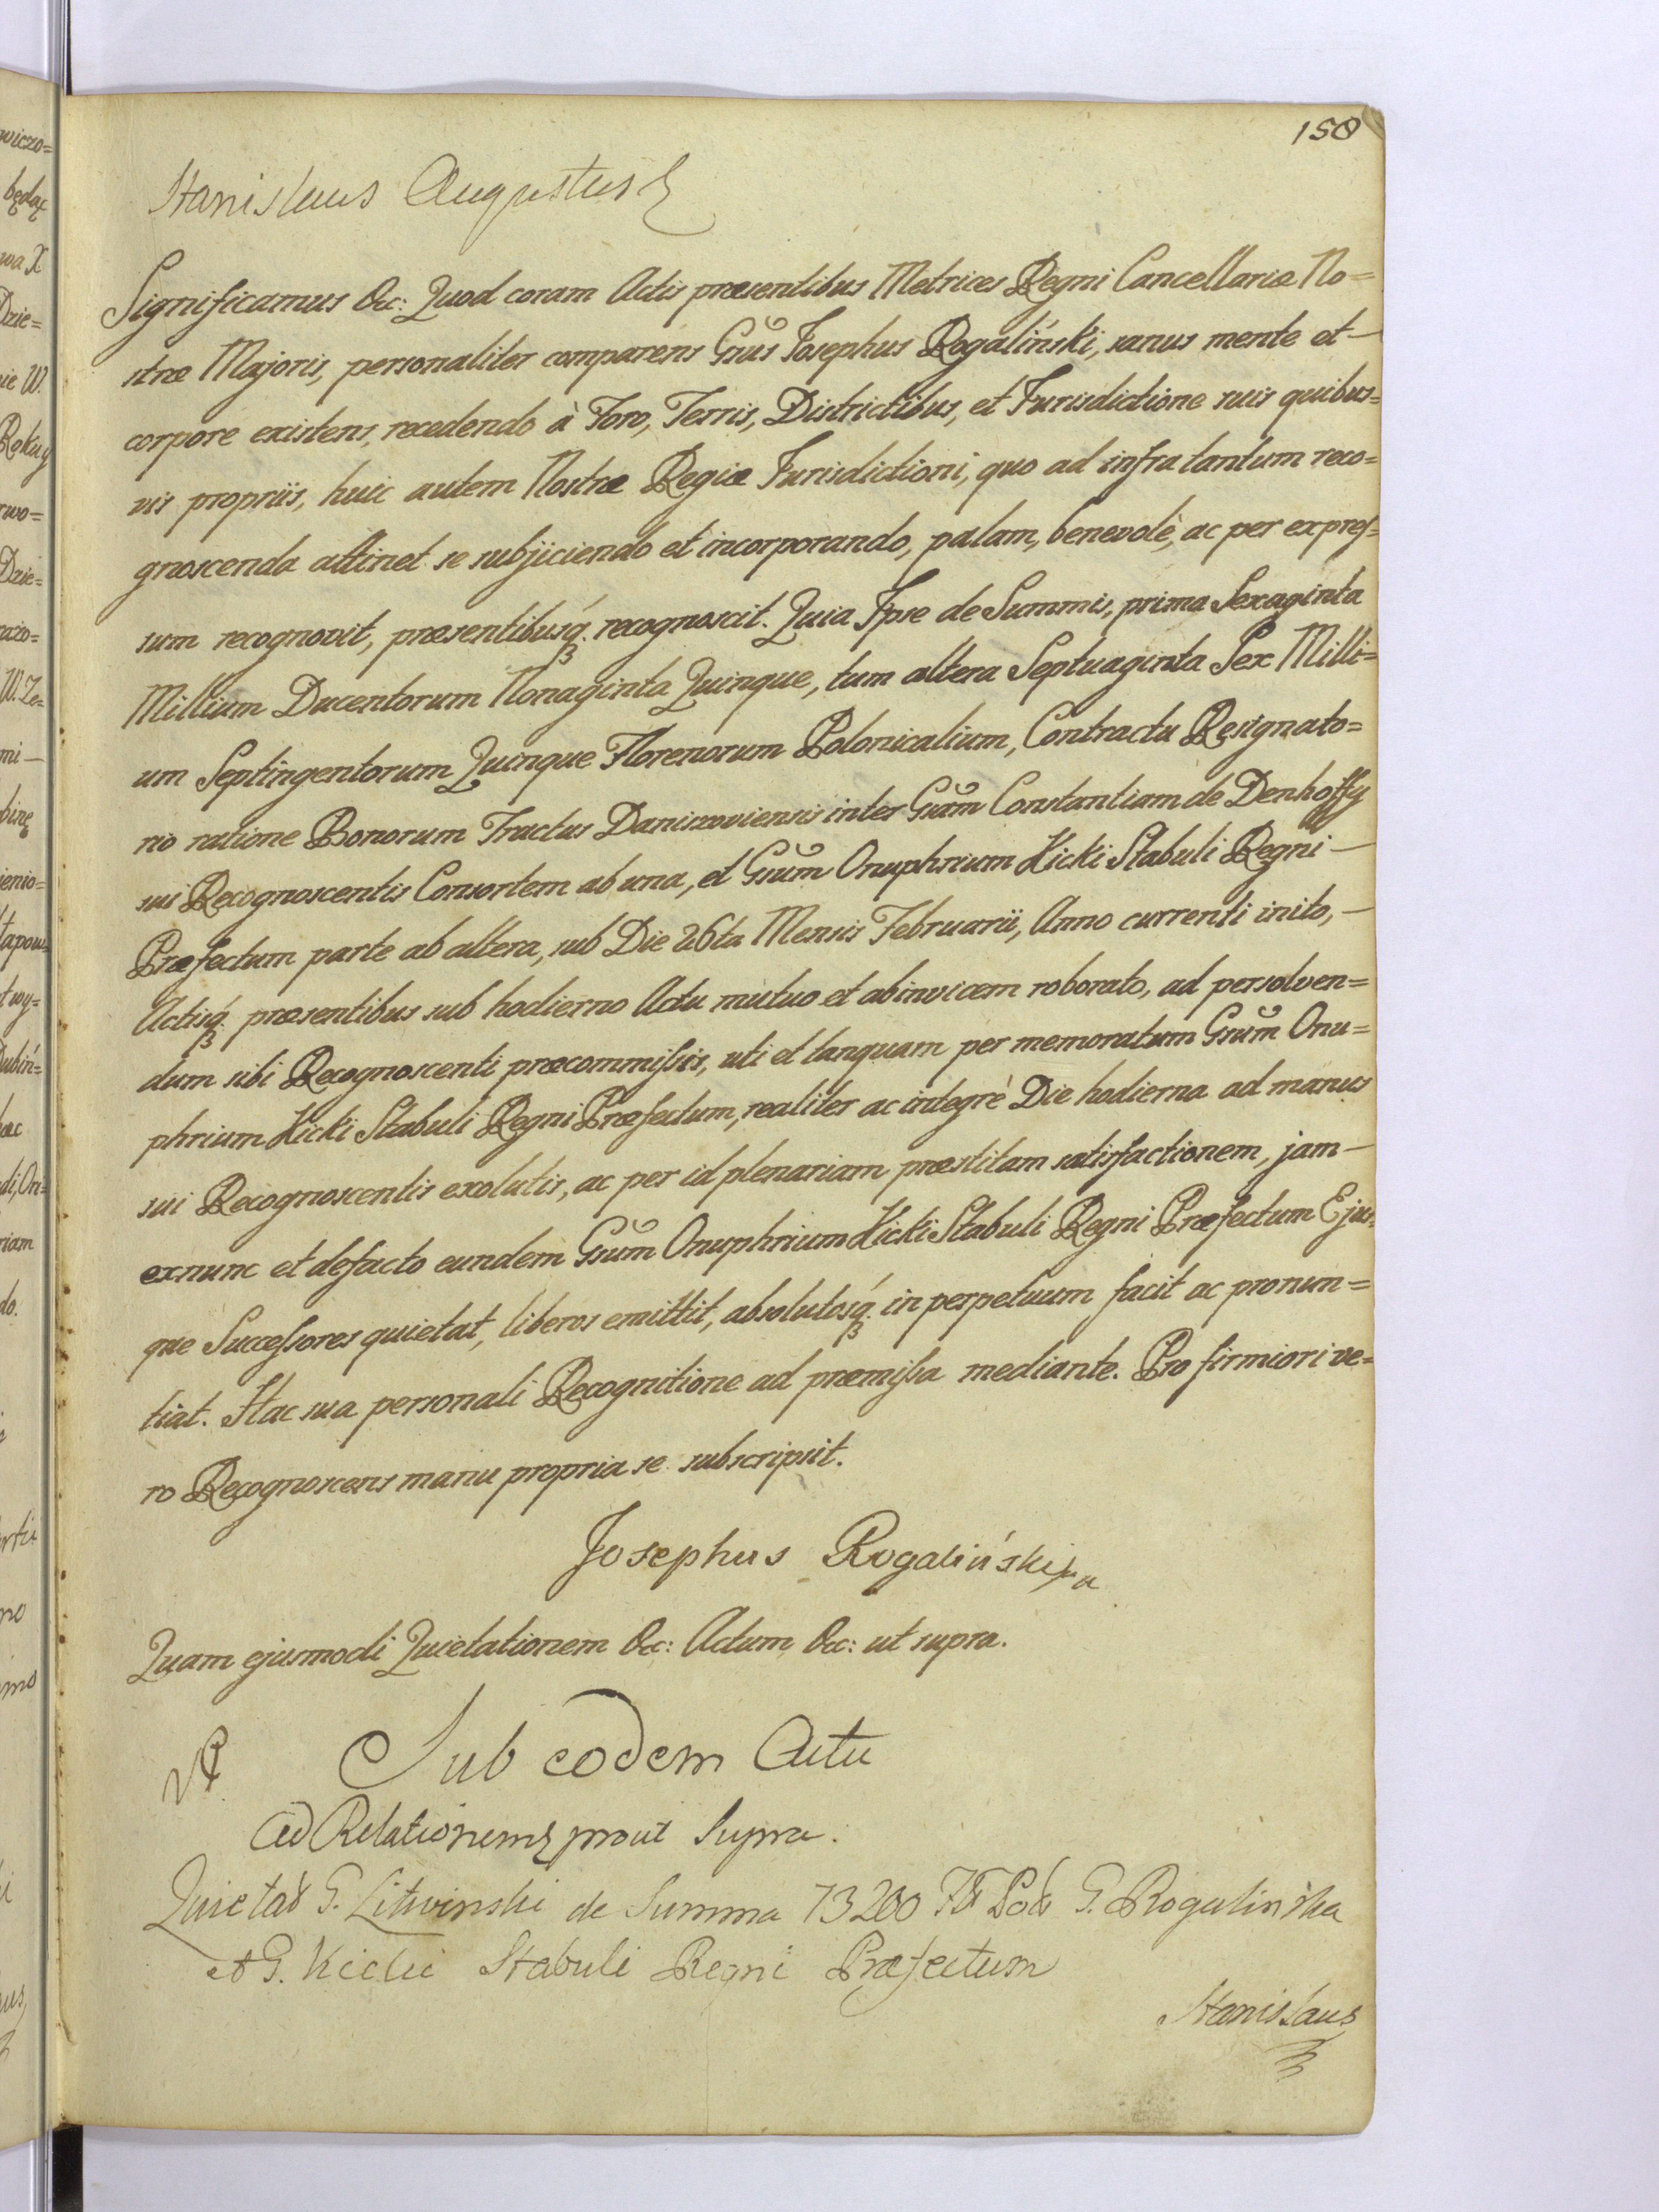 150
Stanislaus Augustus &
Significamus &c: Quod coram Actis præsentibus Metrices Regni Cancellariæ No=
stræ Majoris, personaliter comparens Gnũs Josephus Rogaliński, sanus mente et—
corpore existens, recedendo à Foro, Terris, Districtibus, et Jurisdictione suis quibus=
vis propriis, huic autem Nostræ Regiæ Jurisdictioni, quo ad infra tantum reco=
gnoscenda attinet se subjiciendo et incorporando, palam, benevolè, ac per expres=
sum recognovit, præsentibusq́ꝫ recognoscit. Quia Ipse de Summis, prima Sexaginta
Millium Ducentorum Nonaginta Quinque, tum altera Septuaginta Sex Milli=
um Septingentorum Quinque Florenorum Polonicalium, Contractu Resignato=
rio ratione Bonorum Tractus Daniszoviensis inter Gnãm Constantiam de Denhoffy
sui Recognoscentis Consortem ab una, et Gnũm Onuphrium Kicki Stabuli Regni—
Præfectum parte ab altera, sub Die 26ta Mensis Februarii, Anno currenti inito,—
Actisq́ꝫ præsentibus sub hodierno Actu mutuo et abinvicem roborato, ad persolven=
dum sibi Recognoscenti præcommissis, uti et tanquam per memoratum Gnũm Onu=
phrium Kicki Stabuli Regni Præfectum, realiter ac integrè Die hodierna ad manus
sui Recognoscentis exolutis, ac per id plenariam præstitam satisfactionem, jam—
exnunc et defacto eundem Gnũm Onuphrium Kicki Stabuli Regni Præfectum Ejus=
que Successores quietat, liberos emittit, absolutosq́ꝫ in perpetuum facit ac pronun=
tiat. Hac sua personali Recognitione ad præmissa mediante. Pro firmiori ve=
ro Recognoscens manu propria se subscripsit.
Josephus Rogaliński
Quam ejusmodi Quietationem &c: Actum &c: ut supra.
Sub eodem Actu
Ad Relationem & prout Supra.
Quietat G. Litwinski de Summa 73200 Fl Pol G. Rogalińska
et G. Kicki Stabuli Regni Præfectum
Stanislaus